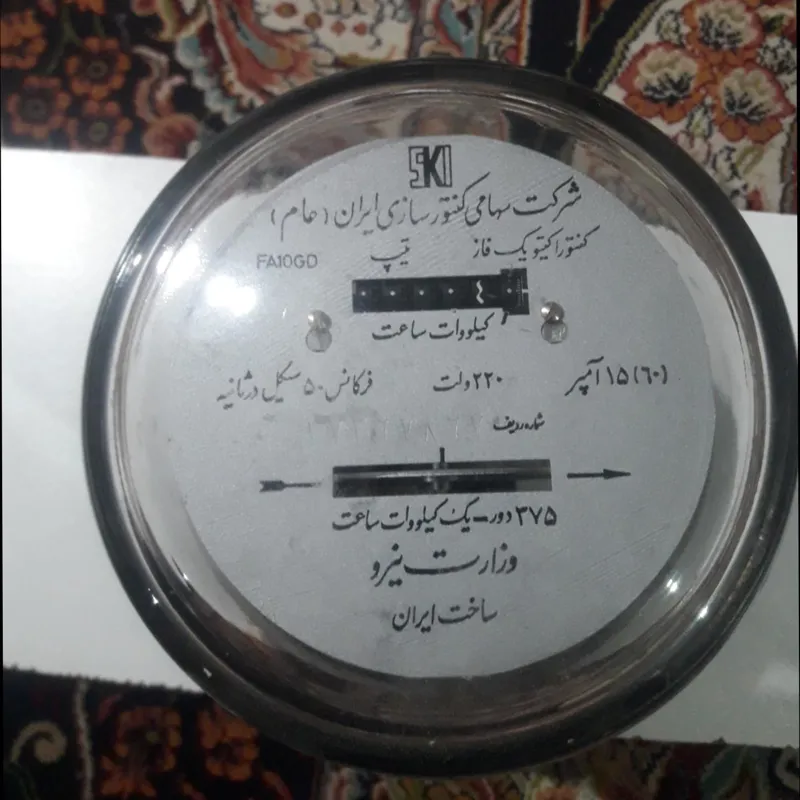 SKI
شرکت سهامی کنتور سازی ایران (عام)
کنتور اکتیو یک فاز
تیپ FA10GD
کیلووات ساعت
۱۵(۶۰) آمپر ۲۲۰ ولت فرکانس ۵۰ سیکل در ثانیه
شماره ردیف
۳۷۵ دور - یک کیلووات ساعت
وزارت نیرو
ساخت ایران